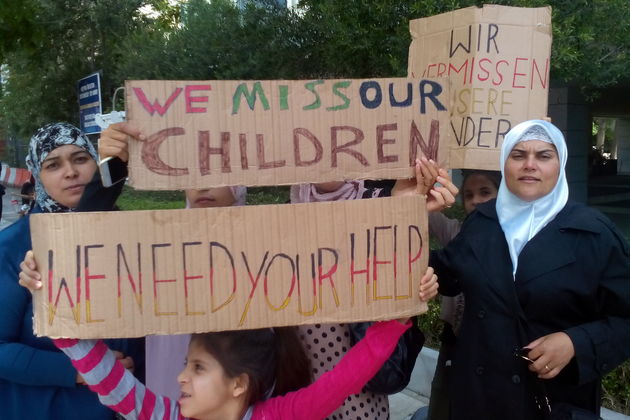 WE MISS OUR
CHILDREN
WE NEED YOUR HELP
WIR
VERMISSEN